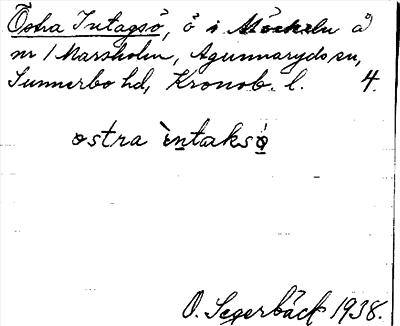 Östra Intagsö, ö i Möckeln å
nr 1 Marsholm, Agunnaryds sn,
Sunnerbo hd, Kronob. l. 4.
östra ìntaksö́
O. Segerbäck 1938.